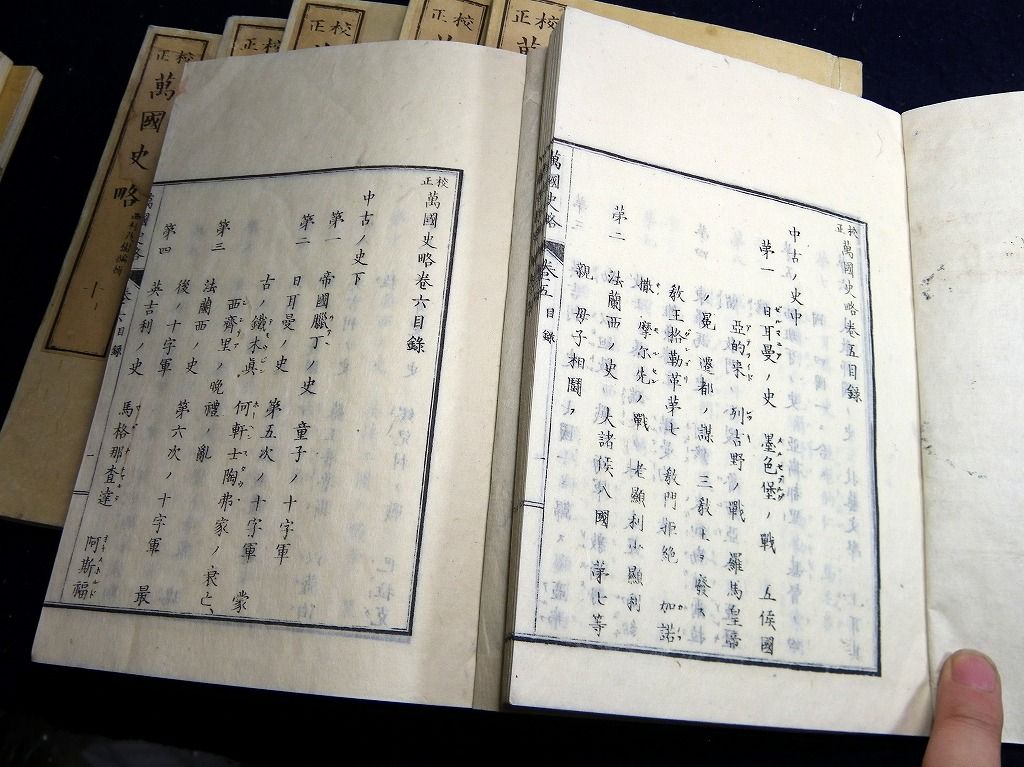 校正
萬國史略
西村茂樹編輯
十
校正
校正
校正
校正
校正萬國史略卷五目錄
中古ノ史中
第一 日耳曼ノ史 墨色堡ノ戰 五侯國
亞的來 列古野ノ戰 亞 羅馬皇帝
ノ冕 遷都ノ謀 三敎王ノ發
敎王格勒革第七 敎門拒絕 加諾
撒 摩尔先ノ戰 老顯利小顯利
第二 法蘭西ノ史 大諸侯 國 第七等
親 母子相鬩
萬國史略 卷五 目錄 一
校正萬國史略卷六目錄
中古ノ史下
第一 帝國臘丁ノ史
第二 日耳曼ノ史 童子ノ十字軍
古ノ鐵木真 第五次ノ十字軍 蒙
西齊里ノ晚禮ノ亂 何軒士陶弗家ノ衰亡
第三 法蘭西ノ史
後ノ十字軍 第六次ノ十字軍 最
第四 英吉利ノ史 馬格那查達 阿斯福
萬國史略 卷六 目錄 一